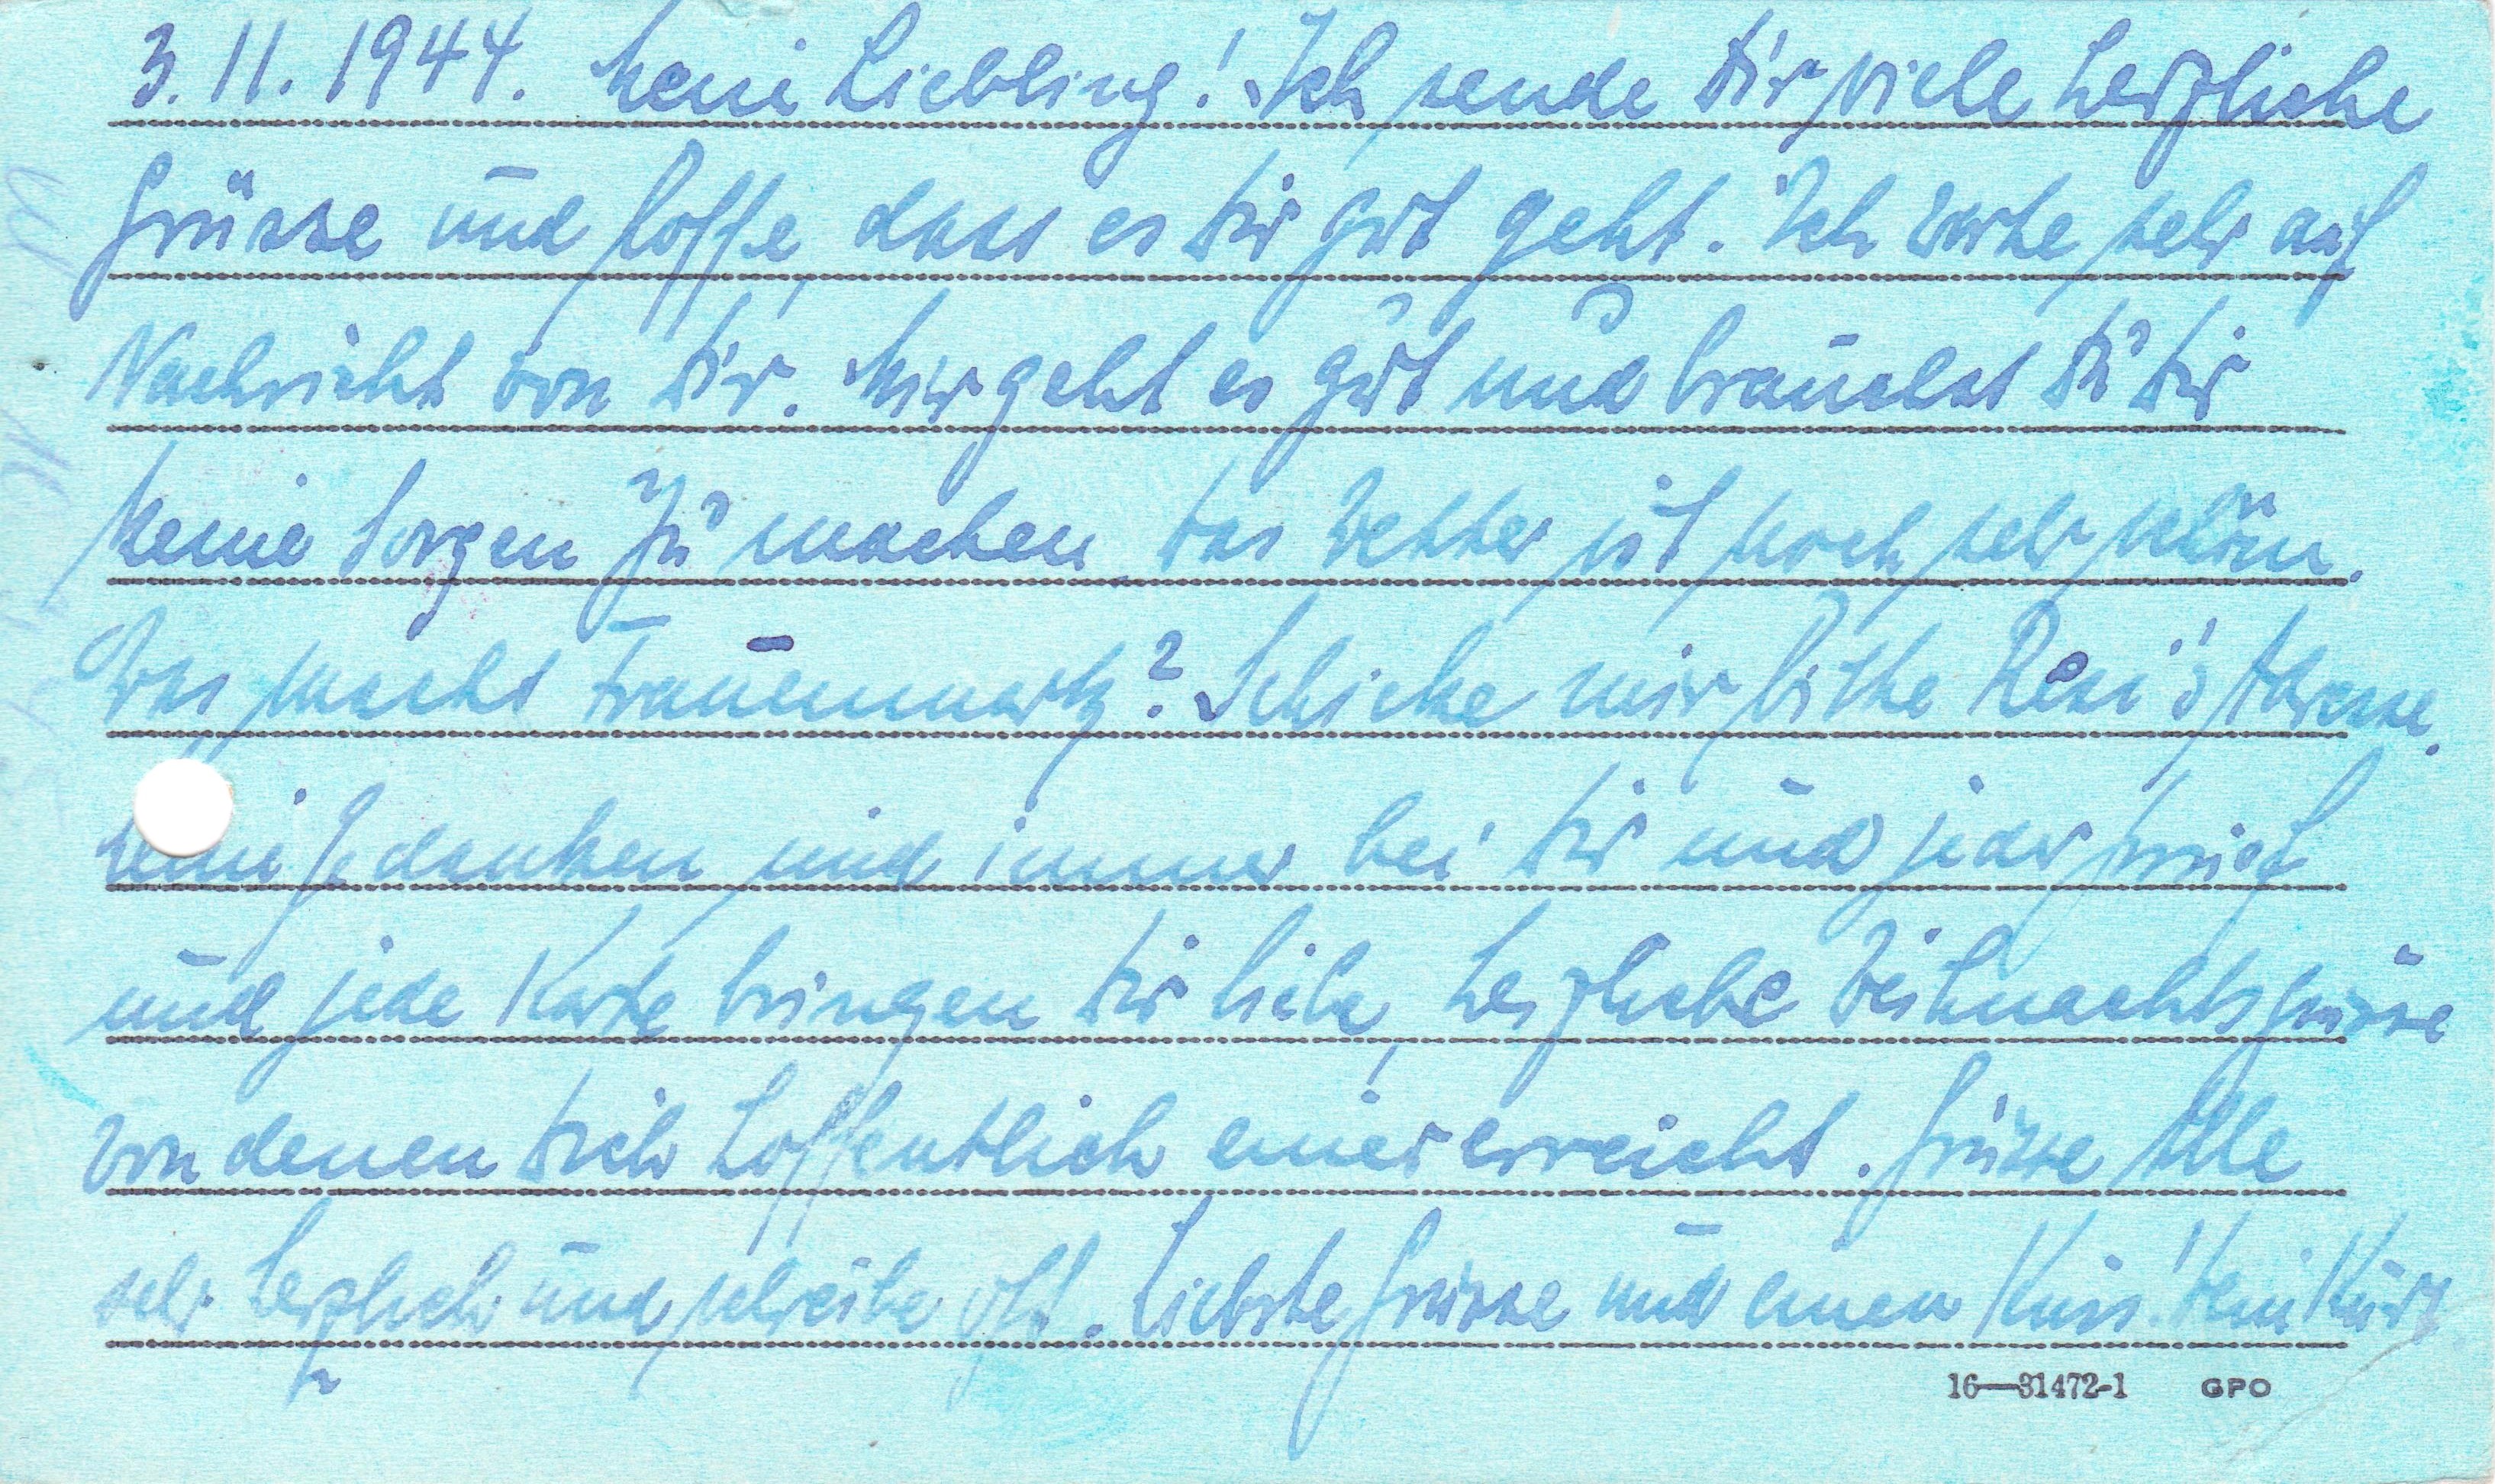 3.11.1944. Mein Liebling! Ich sende Dir viele herzliche
Grüsse und hoffe, dass es Dir gut geht. Ich warte sehr auf
Nachricht von Dir. Mir geht es gut und brauchst Du Dir
keine Sorgen zu machen. Das Wetter ist noch sehr schön.
Was macht ? Schicke mir bitte Resi's Adresse.
Meine Gedanken sind immer bei Dir und jeder Brief
und jede Karte bringen Dir liebe, herzliche Weihnachtsgrüsse
von denen Dich hoffentlich einer erreicht. Grüsse Alle
sehr herzlich und schreibe oft. Liebste Grüsse und einen Kuss! Dein Kurt
16—31472-1 GPO